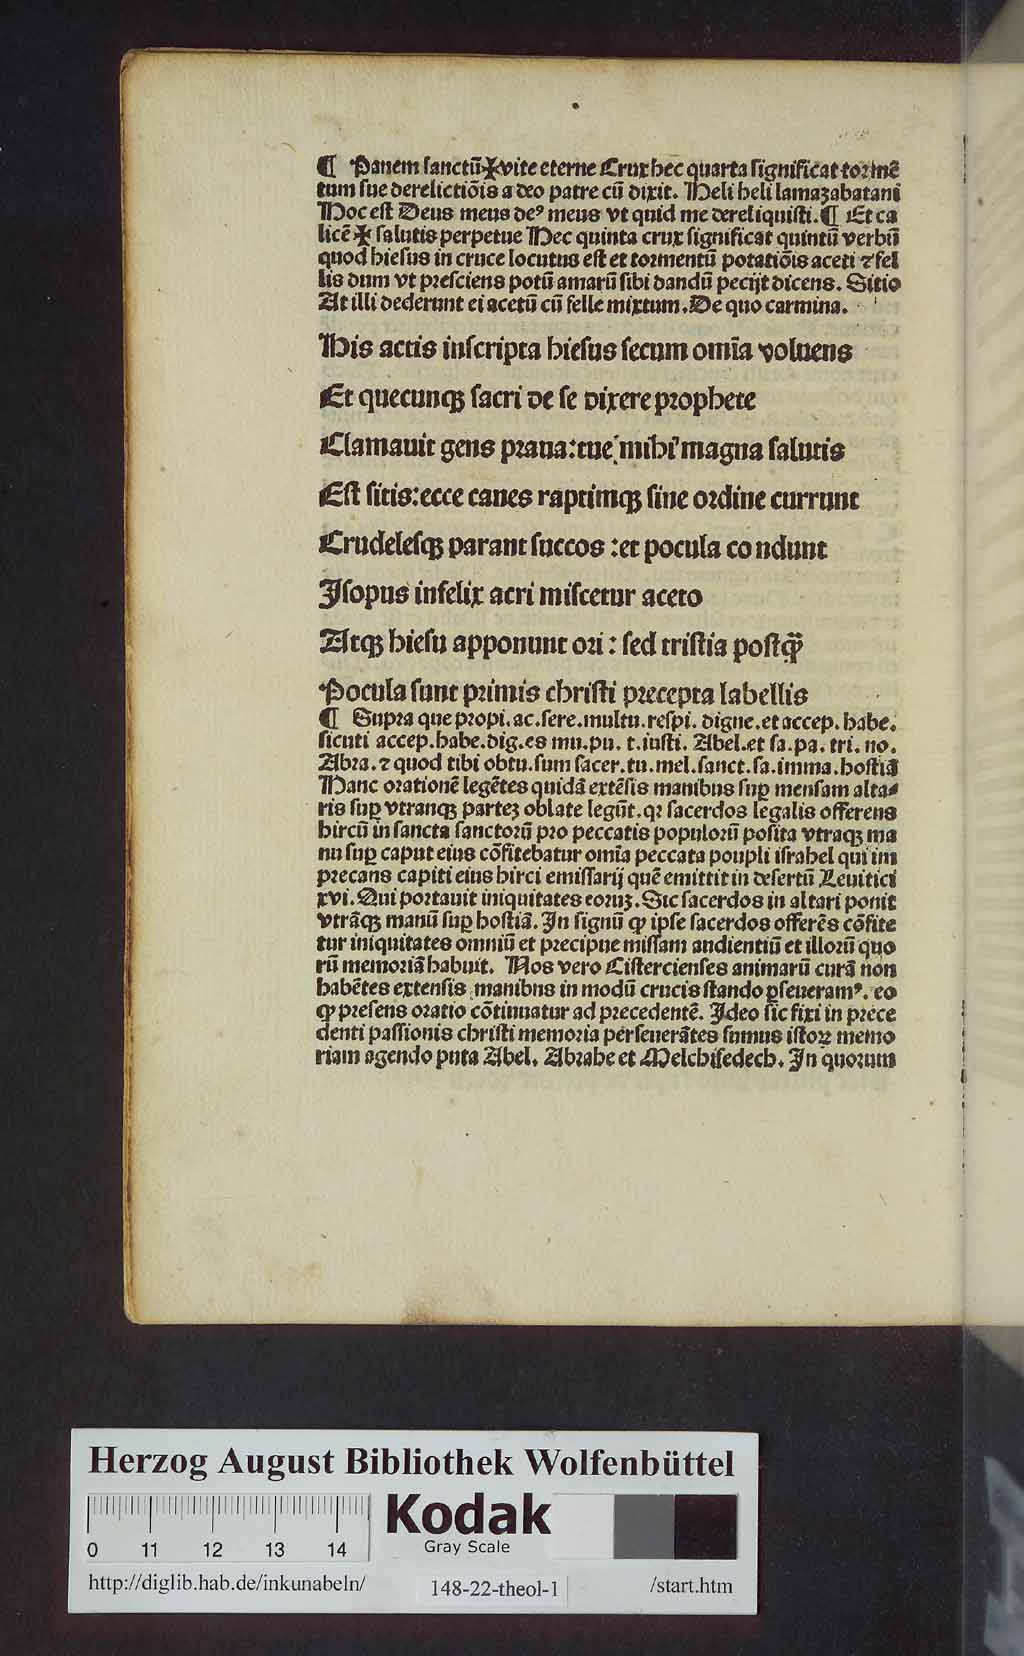 ¶ Panem sanctū ✠ vite eterne Crux hec quarta significat tormē
tum sue derelictiōis a deo patre cū dixit. Heli heli lamazabatani
Hoc est Deus meus deꝰ meus vt quid me dereliquisti. ¶ Et ca
licē ✠ salutis perpetue Hec quinta crux significat quintū verbū
quod hiesus in cruce locutus est et tormentū potatiōis aceti ⁊ fel
lis dum vt presciens potū amarū sibi dandū pecijt dicens. Sitio
At illi dederunt ei acetū cū felle mixtum. De quo carmina.
His actis inscripta hiesus secum omīa voluens
Et quecunqꝫ sacri de se dixere prophete
Clamauit gens praua: tue mihi magna salutis
Est sitis: ecce canes raptimqꝫ sine ordine currunt
Crudelesqꝫ parant succos : et pocula condunt
Isopus infelix acri miscetur aceto
Atqꝫ hiesu apponunt ori : sed tristia postq̄
Pocula sunt primis christi precepta labellis
¶ Supra que propi. ac. sere. multu. respi. digne. et accep. habe.
sicuti accep. habe. dig. es mu. pu. t. iusti. Abel. et sa. pa. tri. no.
Abra. ⁊ quod tibi obtu. sum sacer. tu. mel. sanct. sa. imma. hostiā
Hanc orationē legētes quidā extēsis manibus suꝑ mensam alta-
ris suꝑ vtranqꝫ parteꝫ oblate legūt. qꝛ sacerdos legalis offerens
hircū in sancta sanctorū pro peccatis populorū posita vtraqꝫ ma
nu suꝑ caput eius cōfitebatur omīa peccata poupli israhel qui im
precans capiti eius hirci emissarij quē emittit in desertū Leuitici
xvi. Qui portauit iniquitates eoruꝫ. Sic sacerdos in altari ponit
vtrāqꝫ manū suꝑ hostiā. In signū ꝙ ipse sacerdos offerēs cōfite
tur iniquitates omniū et precipue missam audientiū et illorū quo
rū memoriā habuit. Nos vero Cistercienses animarū curā non
habētes extensis manibus in modū crucis stando ꝑseueramꝰ. eo
ꝙ presens oratio cōtinuatur ad precedentē. Ideo sic fixi in prece
denti passionis christi memoria perseuerātes sumus istoꝝ memo
riam agendo puta Abel. Abrahe et Melchisedech. In quorum
Herzog August Bibliothek Wolfenbüttel
0 11 12 13 14
Kodak
Gray Scale
http://diglib.hab.de/inkunabeln/ 148-22-theol-1 /start.htm